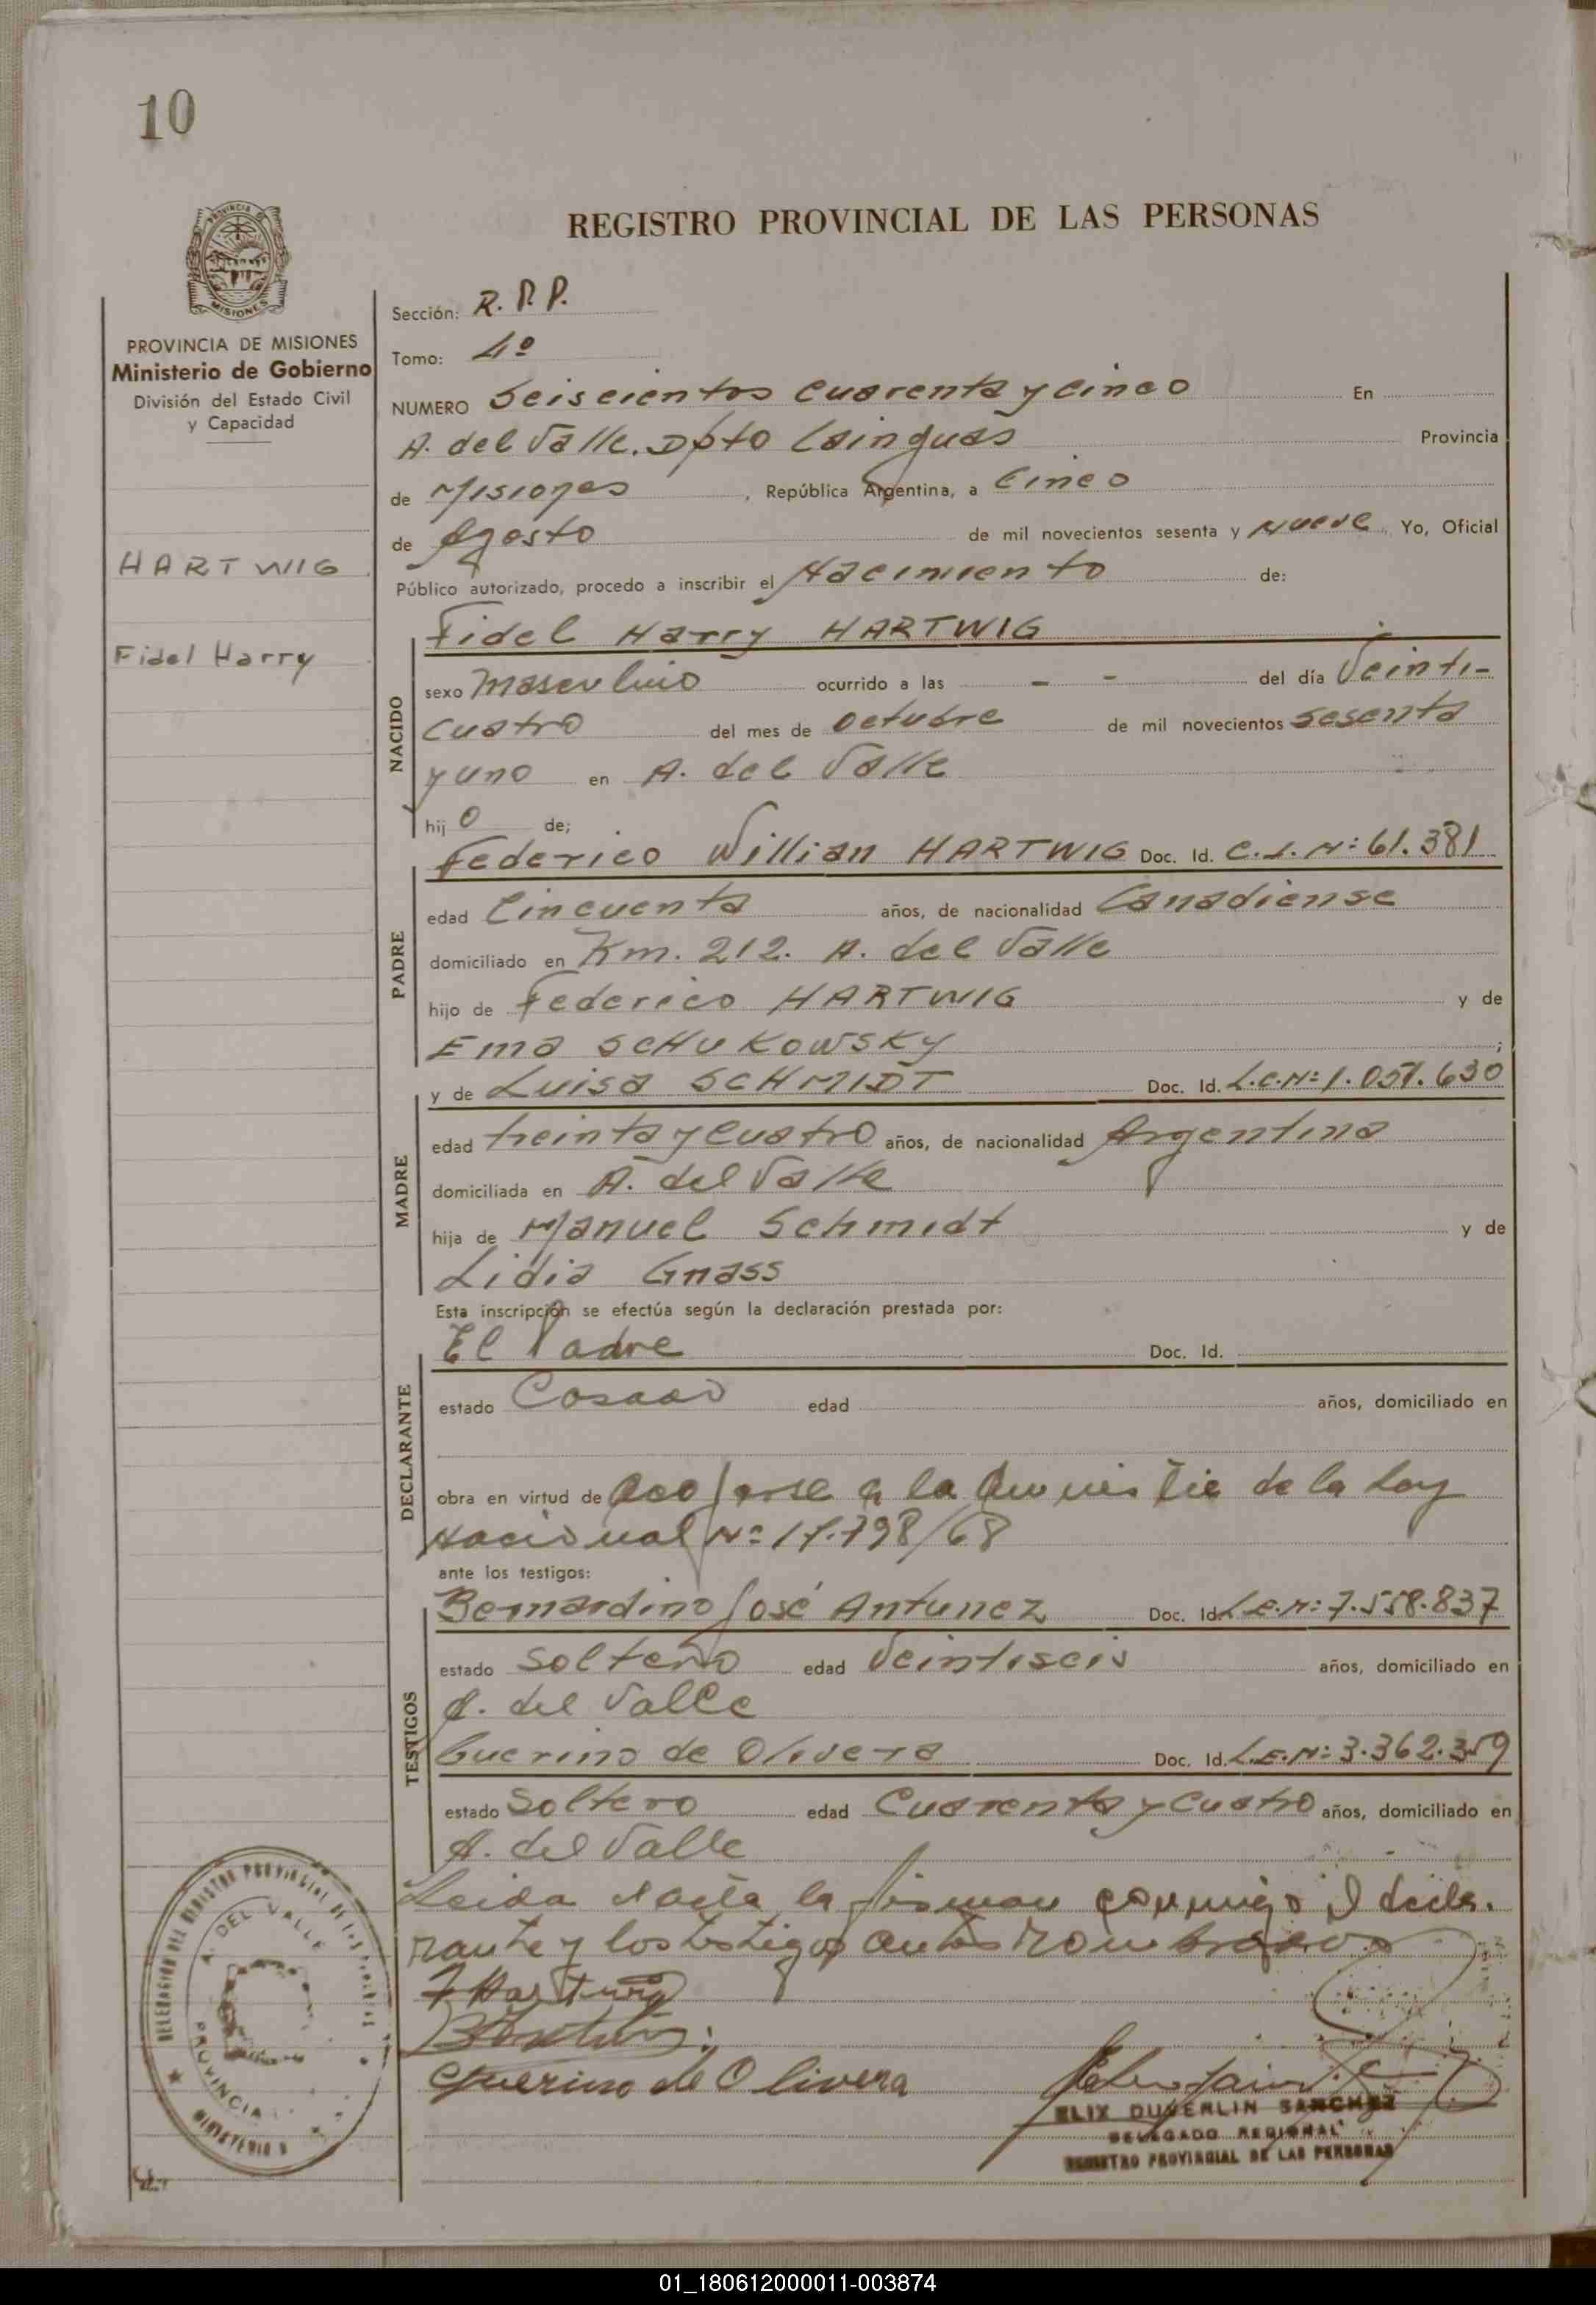 10
REGISTRO PROVINCIAL DE LAS PERSONAS
MISIONES
PROVINCIA DE MISIONES
Ministerio de Gobierno
División del Estado Civil
y Capacidad
HARTWIG
Fidel Harry
Sección: R.P.P.
Tomo: 4º
NUMERO Seiscientos Cuarenta y cinco En
A. del Valle. Dpto Cainguas Provincia
de Misiones, República Argentina, a Cinco
de Agosto de mil novecientos sesenta y Nueve, Yo, Oficial
Público autorizado, procedo a inscribir el Nacimiento de:
NACIDO
Fidel Harry HARTWIG
sexo Masculino ocurrido a las - - del día Veinti-
cuatro del mes de Octubre de mil novecientos sesenta
y uno en A. del Valle
hijo de;
PADRE
Federico Willian HARTWIG Doc. Id. C.I.Nº: 61.381
edad Cincuenta años, de nacionalidad Canadiense
domiciliado en Km. 212. A. del Valle
hijo de Federico HARTWIG y de
Ema SCHUKOWSKY;
MADRE
y de Luisa SCHMIDT Doc. Id. L.C.Nº: 1.057.630
edad treinta y cuatro años, de nacionalidad Argentina
domiciliada en A. del Valle
hija de Manuel Schmidt y de
Lidia Gnass
Esta inscripción se efectúa según la declaración prestada por:
DECLARANTE
El Padre Doc. Id.
estado Casado edad años, domiciliado en
obra en virtud de acojerse a la Amnistie de la Ley
Nacional Nº 17.798/68
ante los testigos:
TESTIGOS
Bernardino José Antunez Doc. Id. L.E.Nº: 7.558.837
estado Soltero edad Veintiseis años, domiciliado en
A. del Valle
Guerino de Olivera Doc. Id. L.E.Nº: 3.362.359
estado Soltero edad Cuarenta y Cuatro años, domiciliado en
A. del Valle
Leida el acta la firman conmigo el decla.
rante y los testigos antes nombrados
F Hartwig
Guerino de Olivera
ELIX DUVERLIN SANCHEZ
DELEGADO REGIONAL
REGISTRO PROVINCIAL DE LAS PERSONAS
DELEGACION DEL REGISTRO PROVINCIAL DE LAS PERSONAS
A. DEL VALLE
PROVINCIA
MINISTERIO
01_180612000011-003874